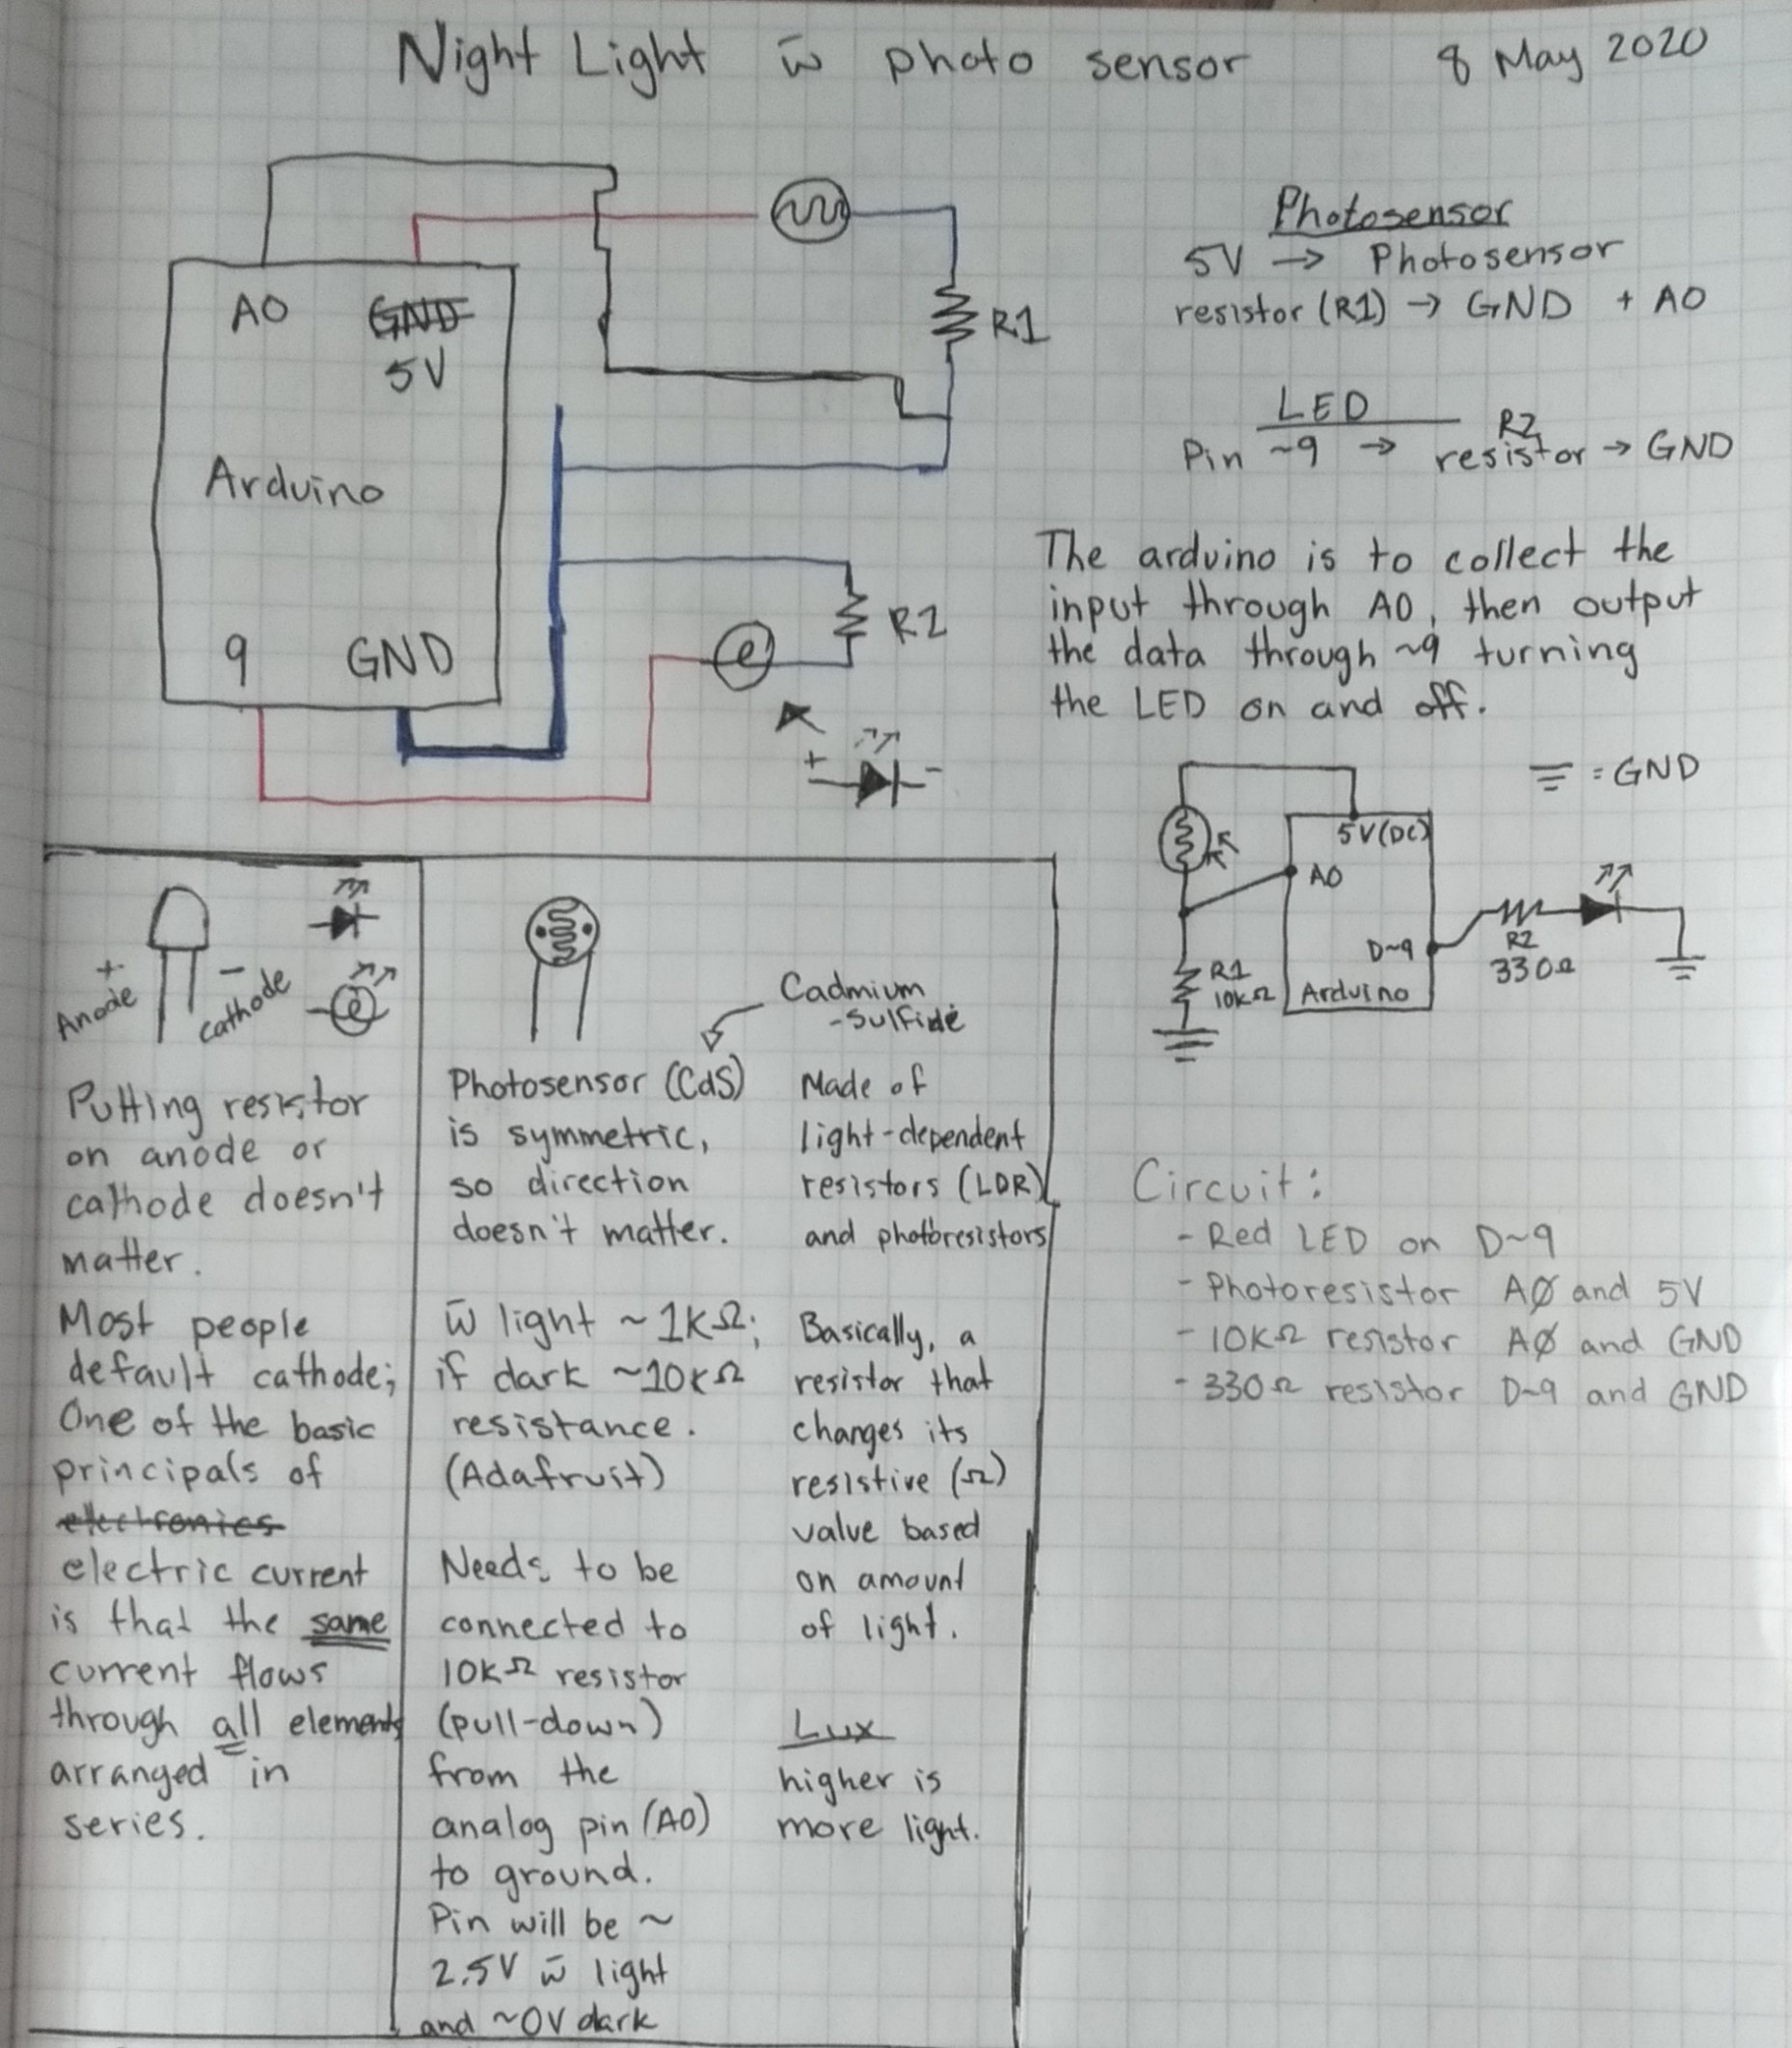 Night Light w̄ photo sensor 8 May 2020
A0 GND
5V
Arduino
9 GND
R1
R2
+ -
Photosensor
5V → Photosensor
resistor (R1) → GND + A0
LED
R2
Pin ~9 → resistor → GND
The arduino is to collect the
input through A0, then output
the data through ~9 turning
the LED on and off.
= GND
5V(DC)
A0
D~9
R1
10KΩ
Arduino
R2
330Ω
+
Anode
-
cathode
Putting resistor
on anode or
cathode doesn't
matter.
Most people
default cathode;
One of the basic
principals of
electronics
electric current
is that the same
current flows
through all elements
arranged in
series.
Cadmium
-Sulfide
Photosensor (CdS)
is symmetric,
so direction
doesn't matter.
w̄ light ~1KΩ;
if dark ~10KΩ
resistance.
(Adafruit)
Needs to be
connected to
10KΩ resistor
(pull-down)
from the
analog pin (A0)
to ground.
Pin will be ~
2.5V w̄ light
and ~0V dark
Made of
light-dependent
resistors (LDR)
and photoresistors
Basically, a
resistor that
changes its
resistive (Ω)
value based
on amount
of light.
Lux
higher is
more light.
Circuit:
- Red LED on D~9
- Photoresistor AØ and 5V
- 10KΩ resistor AØ and GND
- 330Ω resistor D~9 and GND